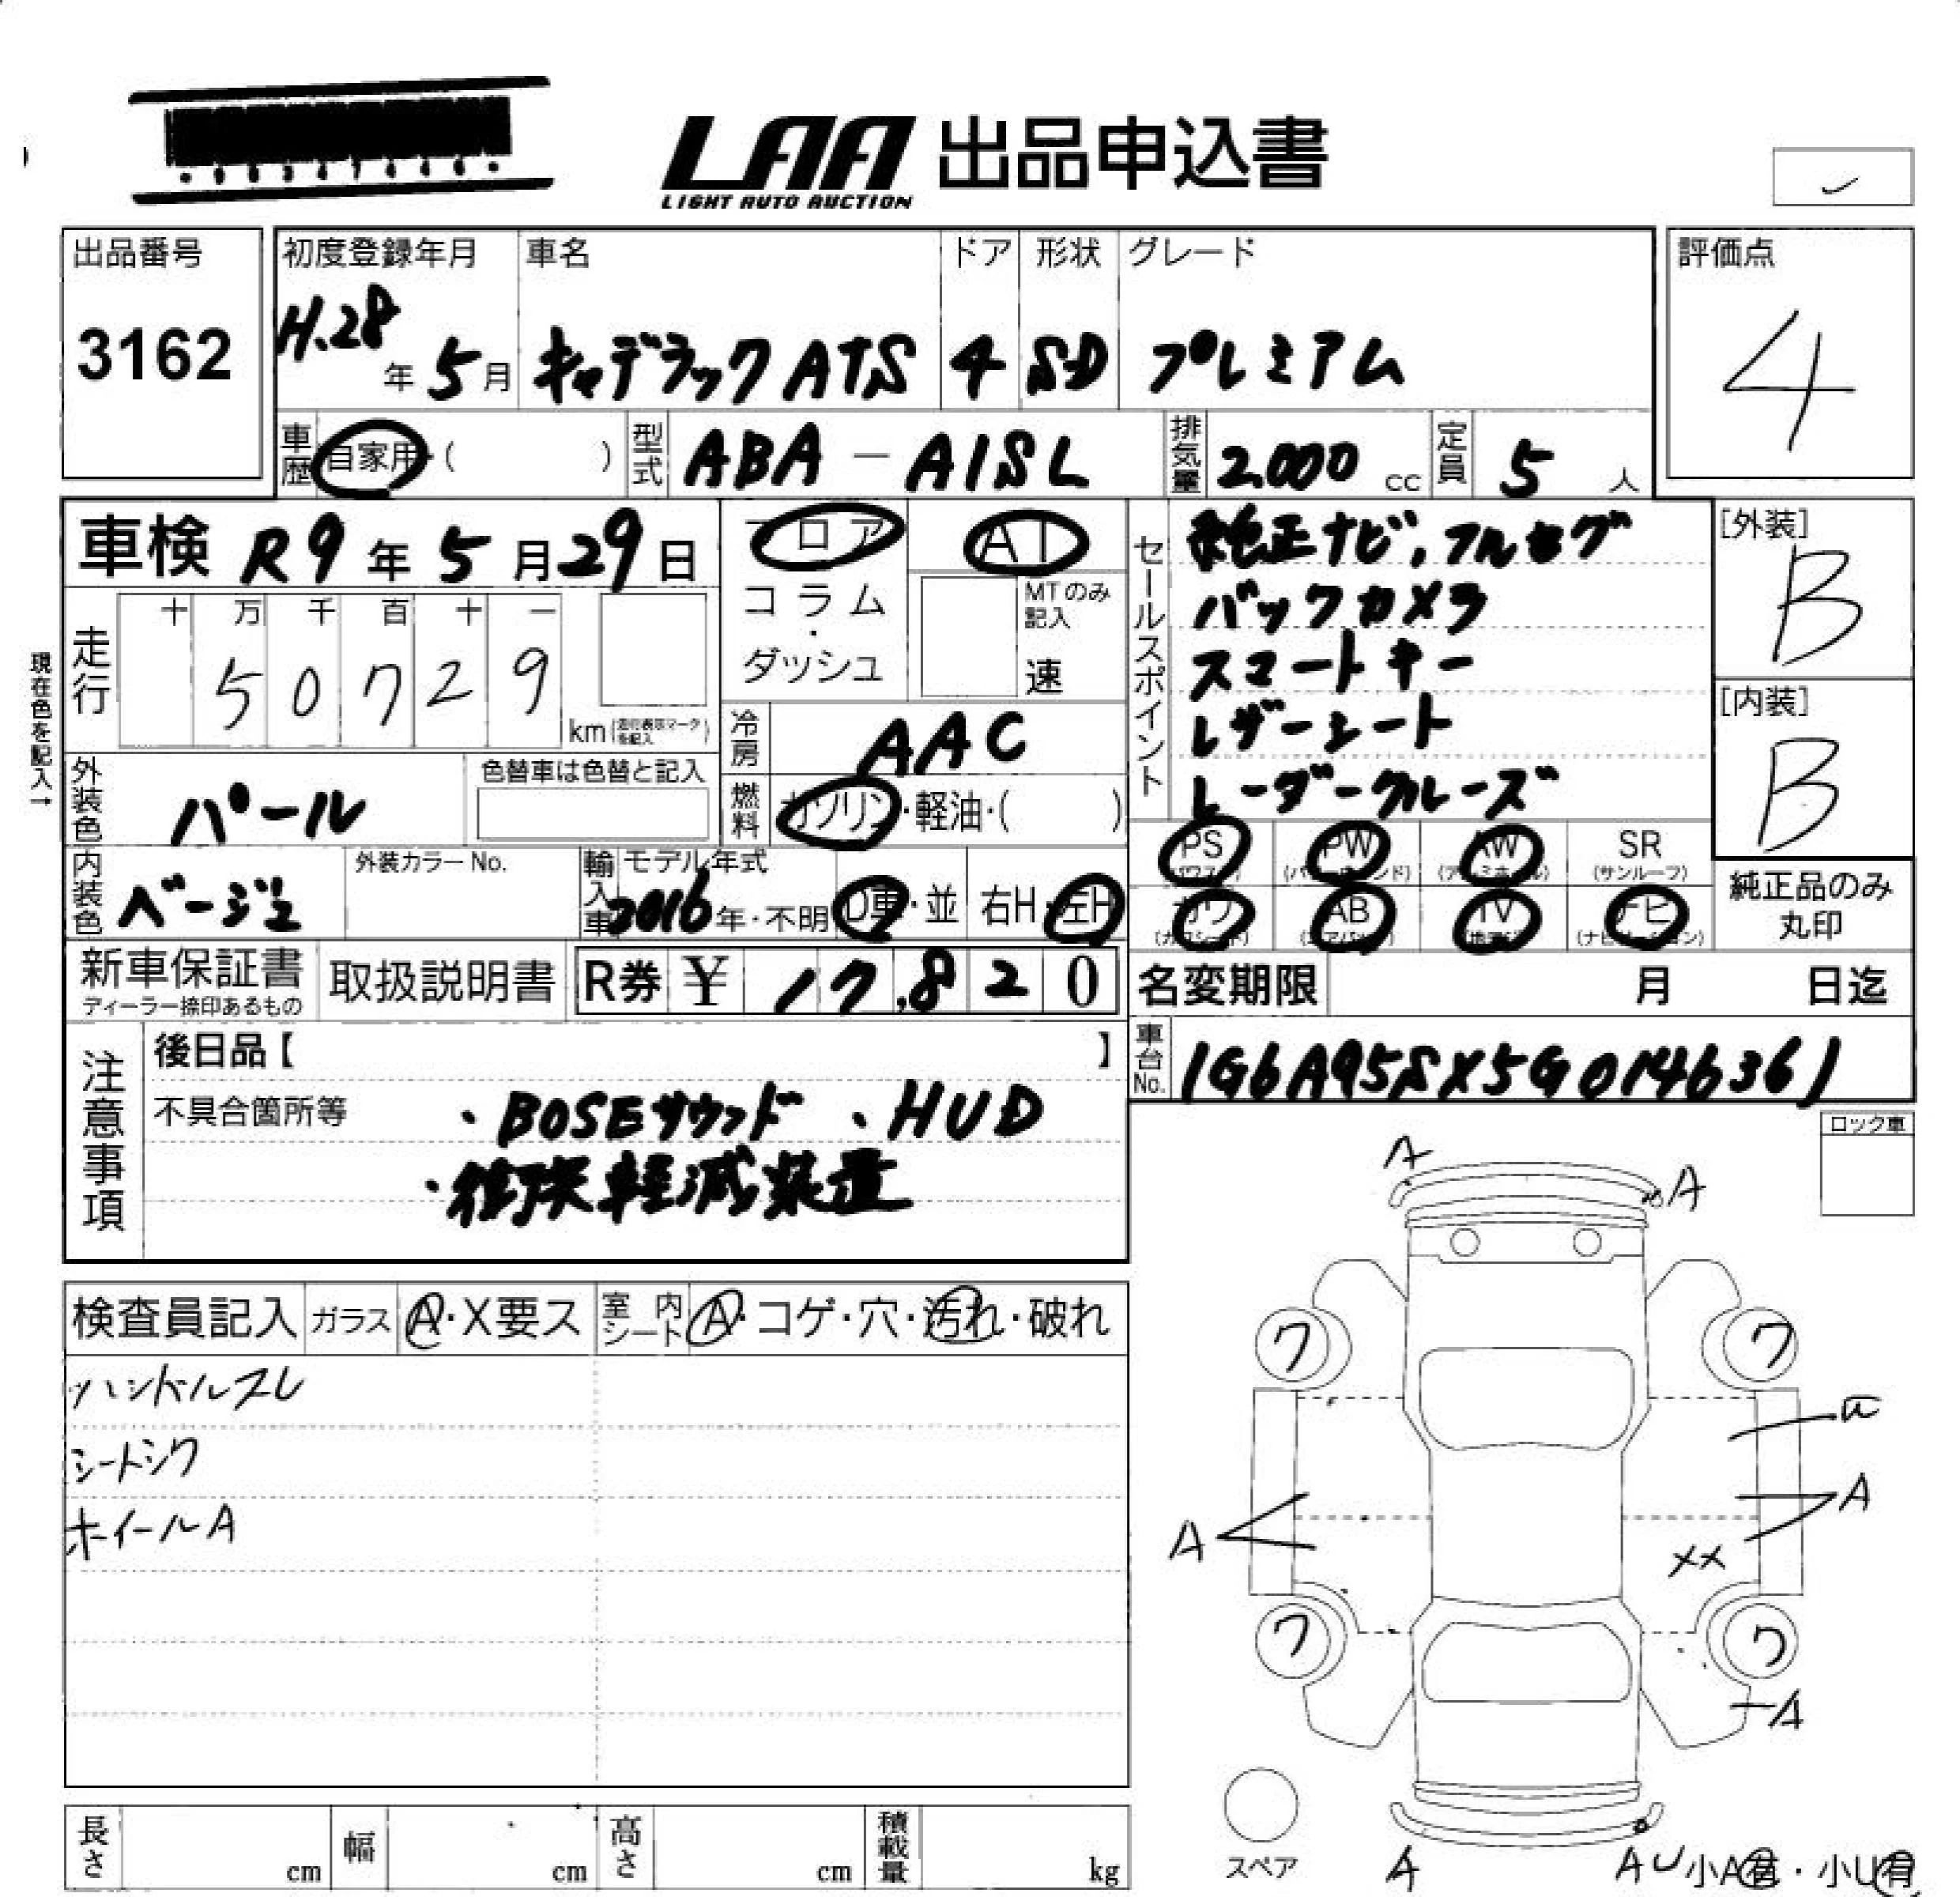 LAA 出品申込書
LIGHT AUTO AUCTION
出品番号
3162
初度登録年月
H.28年 5月
車名
キャデラック ATS
ドア
4
形状
SD
グレード
プレミアム
評価点
4
車歴 自家用・( )
型式 ABA - A1SL
排気量 2.000 cc
定員 5 人
車検 R9年 5月 29日
フロア
コラム
・
ダッシュ
AT
MTのみ記入
速
セールスポイント
純正ナビ, フルセグ
バックカメラ
スマートキー
レザーシート
レーダークルーズ
[外装]
B
[内装]
B
現在色を記入→
走行
十 万 千 百 十 一
5 0 7 2 9
km (走行表示マークを記入)
冷房 AAC
燃料 ガソリン・軽油・( )
外装色 パール
色替車は色替と記入
内装色 ベージュ
外装カラーNo.
輸入車 モデル年式
2016年・不明
D車・並
右H・左H
PS
(パワステ)
PW
(パワーウィンド)
AW
(アルミホイール)
SR
(サンルーフ)
カワ
(カワシート)
AB
(エアバッグ)
TV
ナビ
(ナビゲーション)
純正品のみ
丸印
新車保証書
ディーラー捺印あるもの
取扱説明書
R券 ¥ 17,820
名変期限 月 日迄
車台No. 1G6A95SX5G0146361
注意事項
後日品【 】
不具合箇所等
・BOSEサウンド ・HUD
・衝突軽減装置
ロック車
検査員記入
ガラス Ⓐ・X要ス
室内シート Ⓐ・コゲ・穴・汚れ・破れ
ハンドルスレ
シートシワ
ホイールA
A
A
ワ
ワ
U
A
A
XX
ワ
ワ
A
スペア
A
AU
小A有・小U有
長さ cm
幅 cm
高さ cm
積載量 kg